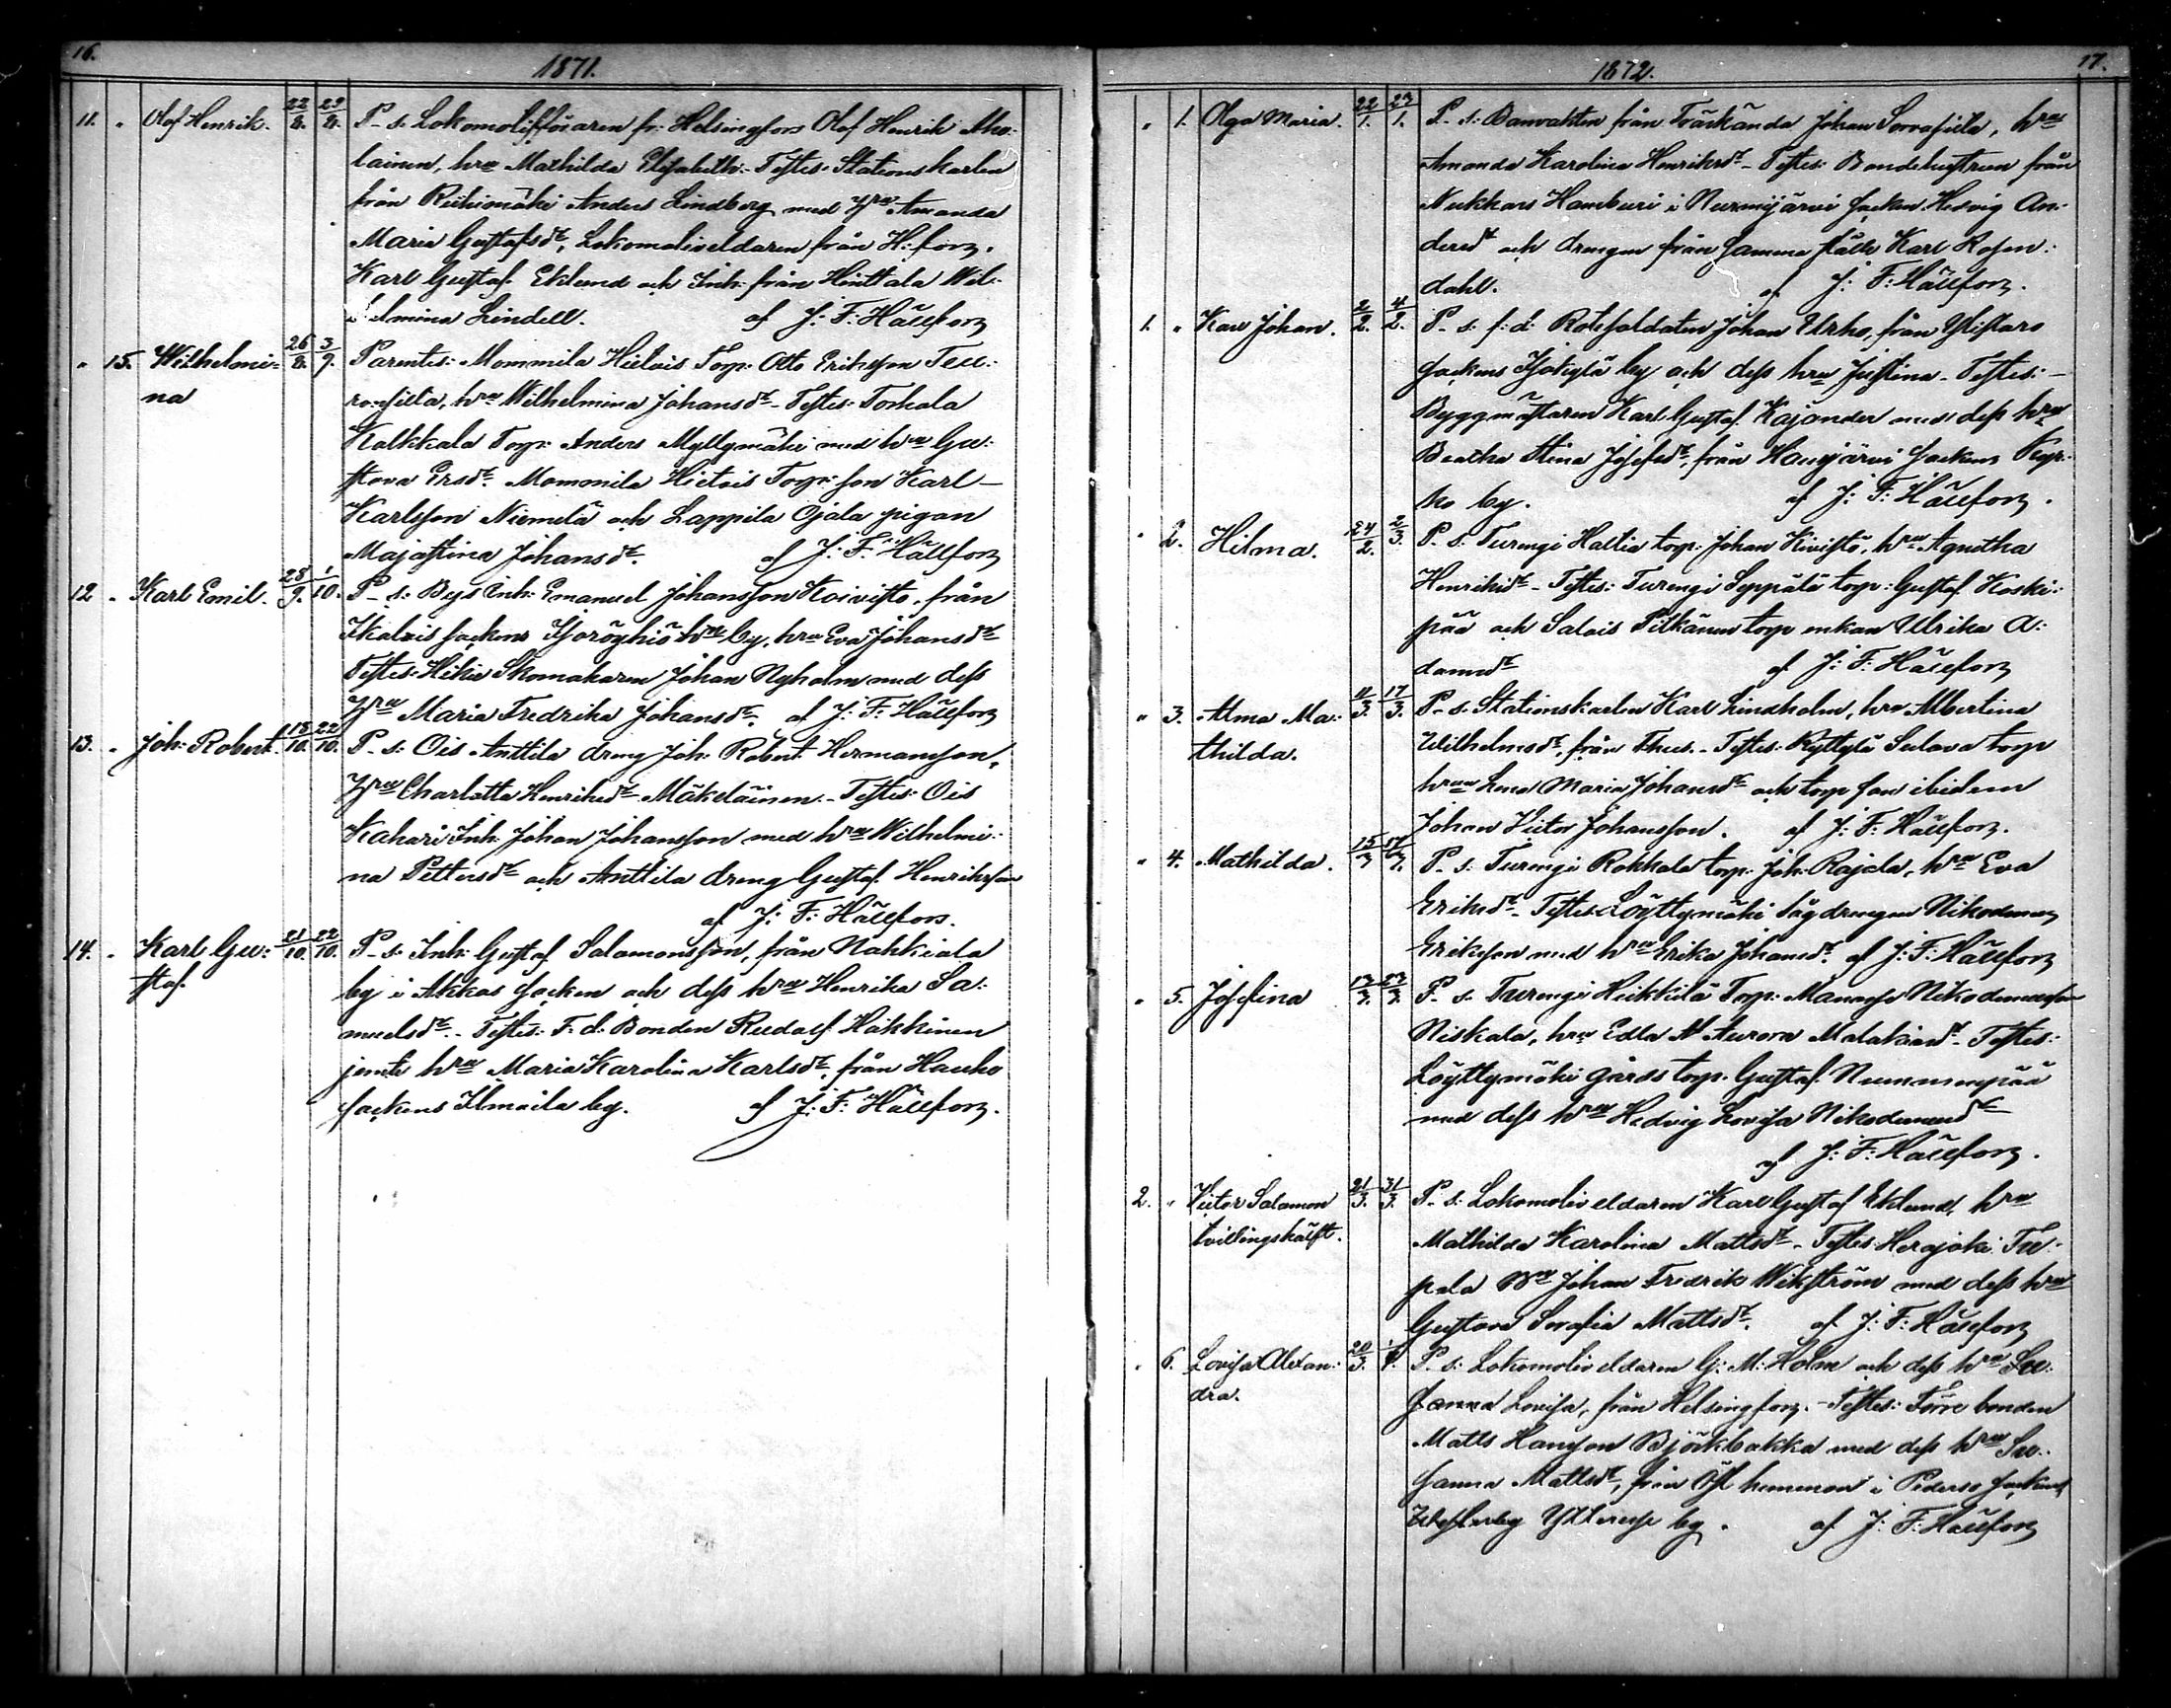 16.
1871.
11. " Olof Henrik. 22/8. 29/8. P. s. Lokomotifföraren fr: Helsingfors Olof Henrik Aho:
lainen, hru Mathilda Elisabeth. Testes: Stationskarlen
från Riihimäki Anders Lindberg med Hru Amanda
Maria Gustafsdr, Lokomotiveldaren från H:fors.
Karl Gustaf Eklund och Inh: från Hinttala Wil:
helmina Lindell. af J: F: Hällfors
" 15. Wilhelmi= 26/8. 3/9. Parentes: Mommila Hietois Torp: Otto Eriksson Teu:
na ronsilta, hru Wilhelmina Johansdr - Testes: Torhala
Kalkkala Torp: Anders Myllymäki med hru Gu:
stava Ersdr. Mommila Hietois Torp: son Karl
Karlsson Niemelä och Lappila Ojala pigan
Majastina Johansdr. af J: F: Hällfors
12 " Karl Emil. 28/9. 1/10. P. s: Bys Inh: Emanuel Johansson Koivisto, från
Ikalis sockens by, hru Eva Johansdr
Testes: Hikiä Skomakaren Johan Nyholm med dess
Hru Maria Fredrika Johansdr. af J: F: Hällfors
13. " Joh: Robert. 15/10. 22/10. P. s: Ois Anttila dreng Joh: Robert Hermansson,
Hru Charlotta Henriksdr Mäkeläinen. - Testes: Ois
Kahari Inh: Johan Johansson med hru Wilhelmi:
na Pettersdr och Anttila dreng Gustaf Henriksson
af J: F: Hällfors.
14. " Karl Gu: 21/10. 22/10. P. s: Inh: Gustaf Salomonsson, från Nahkiala
staf by i Akkas socken och dess hru Henrika Sa:
muelsdr. - Testes: F. d: Bonden Rudolf Häkkinen
jemte hru Maria Karolina Karlsdr, från Hauho
sockens Ilmoila by. af J: F: Hällfors.
17.
1872.
" 1. Olga Maria. 22/1. 27/1. P. s: Banvakten från Träskända Johan Sorvasilta, hru
Amanda Karolina Henriksdr - Testes: Bondehustrun från
Nukkars Hamburi i Nurmijärvi socken Hedvig An:
dersdr och drengen från samma ställe Karl Rosen:
dahl. af J: F: Hällfors.
1. " Karl Johan. 2/2. 4/2. P. s. f: d: Rotesoldaten Johan Urho, från Ylistaro
sockens by och dess hru Justina - Testes: -
Byggmästaren Karl Gustaf Kajander med dess hru
Beatha Stina Josefsdr, från Hausjärvi sockens Kar:
ho by. af J: F: Hällfors.
" 2. Hilma. 24/2. 2/3. P. s: Turengi Hallia torp: Johan Kivistö, hru Agnetha
Henriksdr - Testes: Turengi Seppälä torp: Gustaf Koski:
pää och Salois Pitkänen torp enkan Ulrika A:
damsdr af J: F: Hällfors
" 3. Alma Ma: 11/3. 17/3. P. s. Stationskarlen Karl Lindholm, hru Albertina
thilda. Wilhelmsdr, från Thus. - Testes: Ryttylä Sulava torp
hrun Lena Maria Johansdr och torp son ibidem
Johan Victor Johansson. af J: F: Hällfors.
" 4. Mathilda. 15/3 17/3. P. s: Turengi Rokkala torp: Joh: Rajala, hru Eva
Eriksdr - Testes: Löyttymäki sågdrengen Nikodemus
Eriksson med hru Erika Johansdr. af J: F: Hällfors
" 5. Josefina P. s. Turengi Heikkilä Torp: Manasse Nikodemusson
Niskala, hru Edla Aurora Malakiasdr - Testes:
Löyttymäki gårds torp. Gustaf Nummenpää
med dess hru Hedvig Lovisa Nikodemusdr
af J: F: Hällfors.
2. " Victor Salomon 21/3. 31/3. P. s: Lokomotiveldaren Karl Gustaf Eklund, hru
tvillingshälft. Mathilda Karolina Mattsdr - Testes: Herajoki Tu:
pala Bn Johan Fredrik Wikström med dess hru
Gustava Serafia Mattsdr. af J: F: Hällfors
" 6. Lovisa Alexan: 20/3. P. s: Lokomotiveldaren G: M: Holm och dess hru Su:
dra. sanna Lovisa, från Helsingfors. - Testes: Förre bonden
Matts Hansson Björkbakka med dess hru Su:
sanna Mattsdr, från Öst hemman i Pedersö sockens
Ytteresse by. af J: F: Hällfors